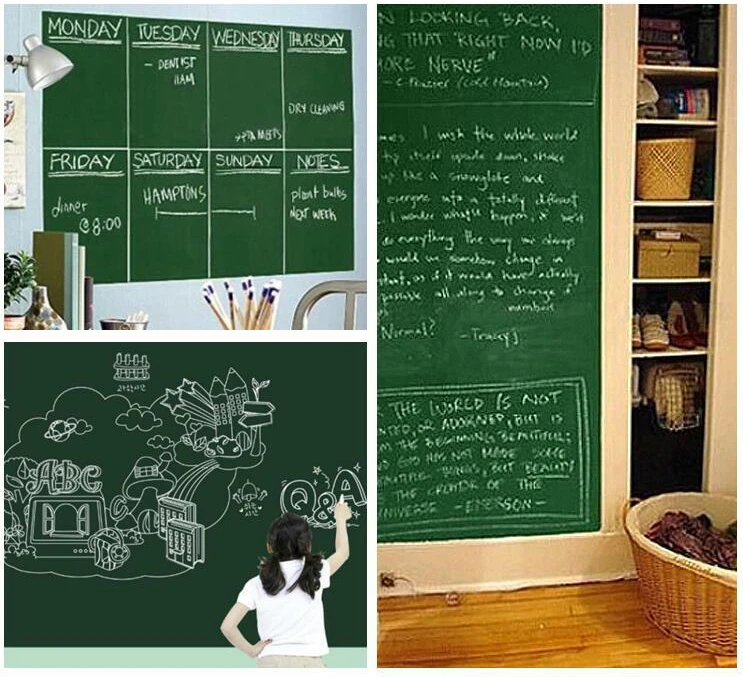 MONDAY TUESDAY WEDNESDAY THURSDAY
- DENTIST
11AM
DRY CLEANING
FRIDAY SATURDAY SUNDAY NOTES
dinner
@ 8:00
HAMPTONS
plant bulbs
NEXT WEEK
LOOKING BACK,
THAT RIGHT NOW I'D
NERVE"
(Cold Mountain)
I wish the whole world
itself upside down, shake
up like a snowglobe and
everyone into a totally different
I wonder what'd happen, if we'd
do everything the way we always
would we somehow change in
as if it would have actually
possible all along to change if
numbers
Normal? - Tracey J
THE WORLD IS NOT
OR ADORNED, BUT IS
THE BEGINNING BEAUTIFUL;
GOD HAS NOT MADE SOME
THINGS, BUT BEAUTY
THE CREATOR OF THE
UNIVERSE - EMERSON -
ABC
Q&A